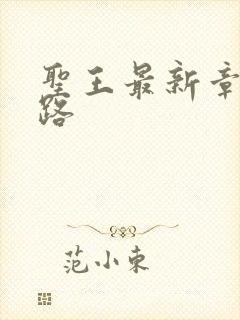 聖王最新章
路
范小東